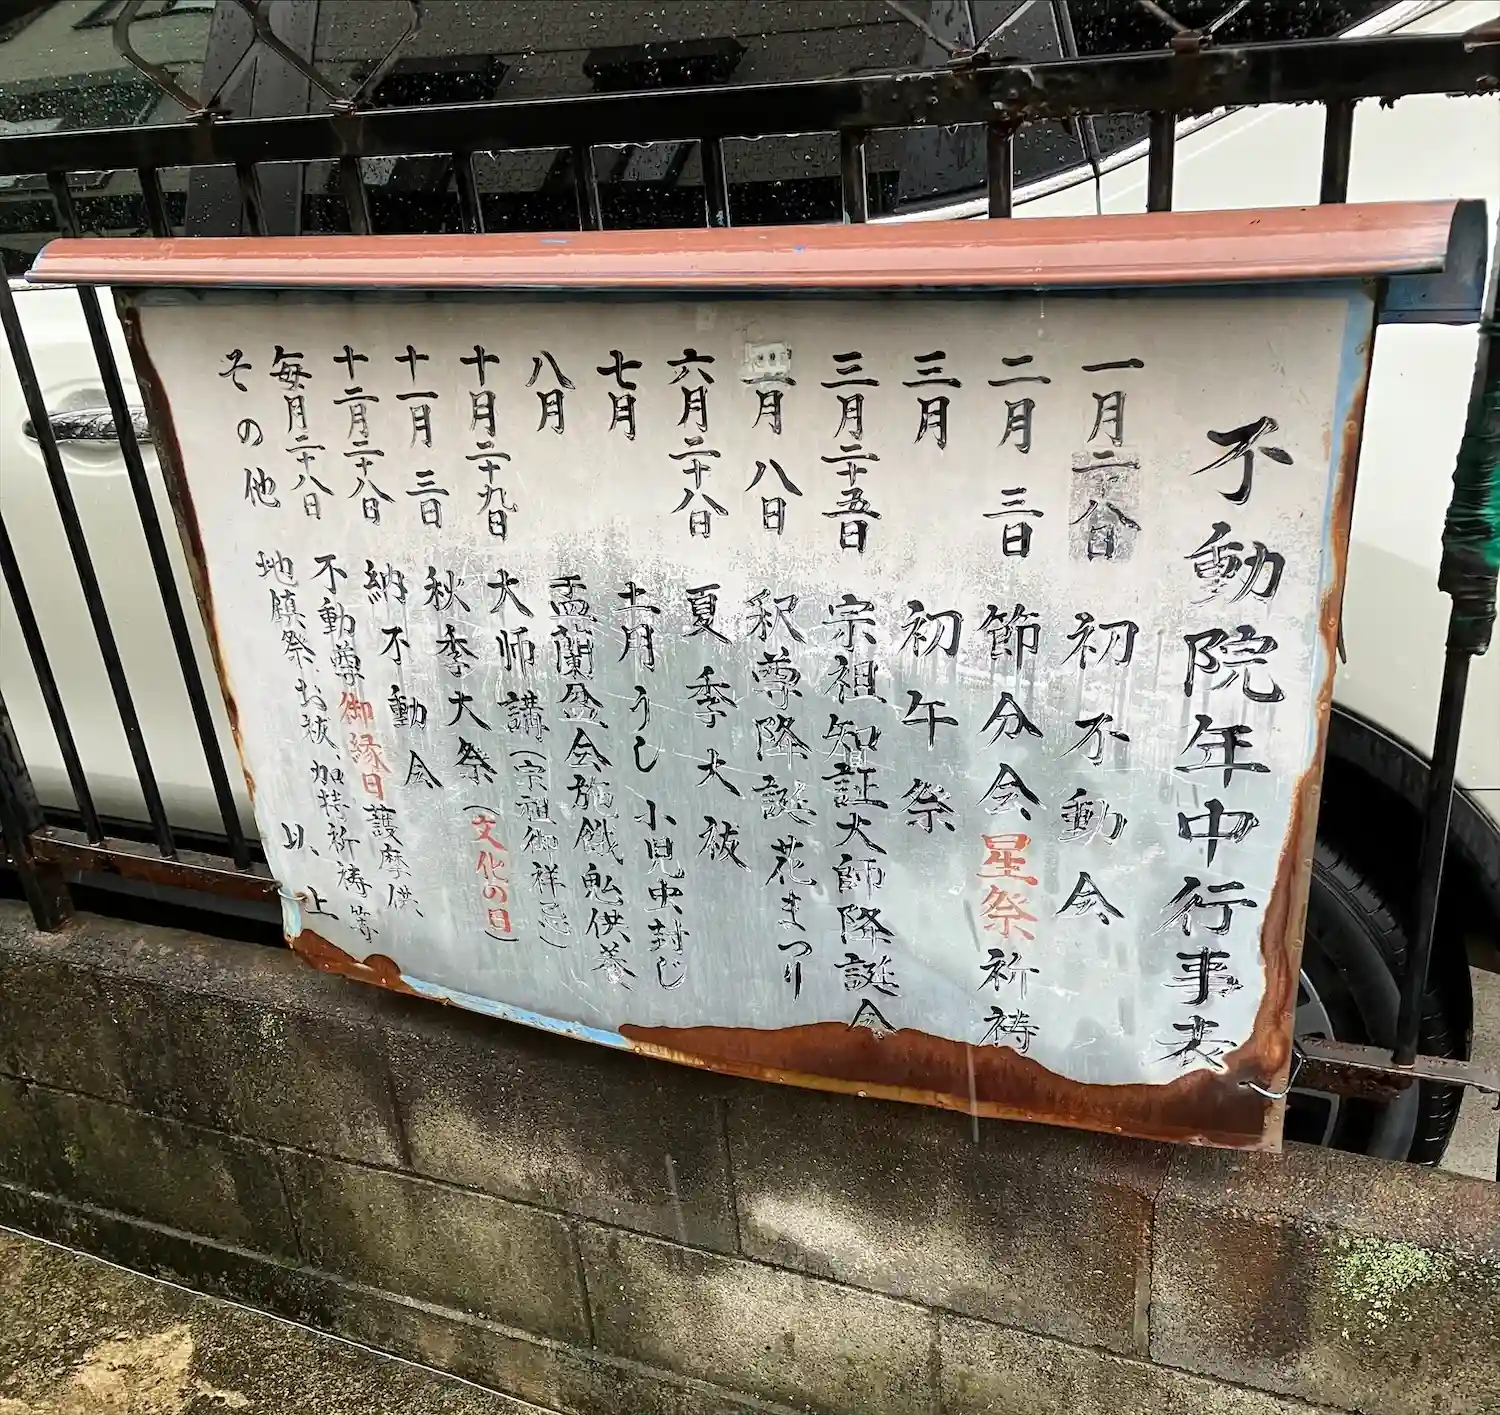 不動院年中行事表
一月二十八日 初不動会
二月三日 節分会星祭祈祷
三月 初午祭
三月二十五日 宗祖智証大師降誕会
月八日 釈尊降誕花まつり
六月二十八日 夏季大祓
七月 土月うし 小児虫封じ
八月 盂蘭盆会施餓鬼供養
十月二十九日 大師講(宗祖御祥忌)
十一月三日 秋季大祭(文化の日)
十二月二十八日 納不動会
毎月二十八日 不動尊御縁日護摩供
その他 地鎮祭、お祓、加持祈祷等
以上